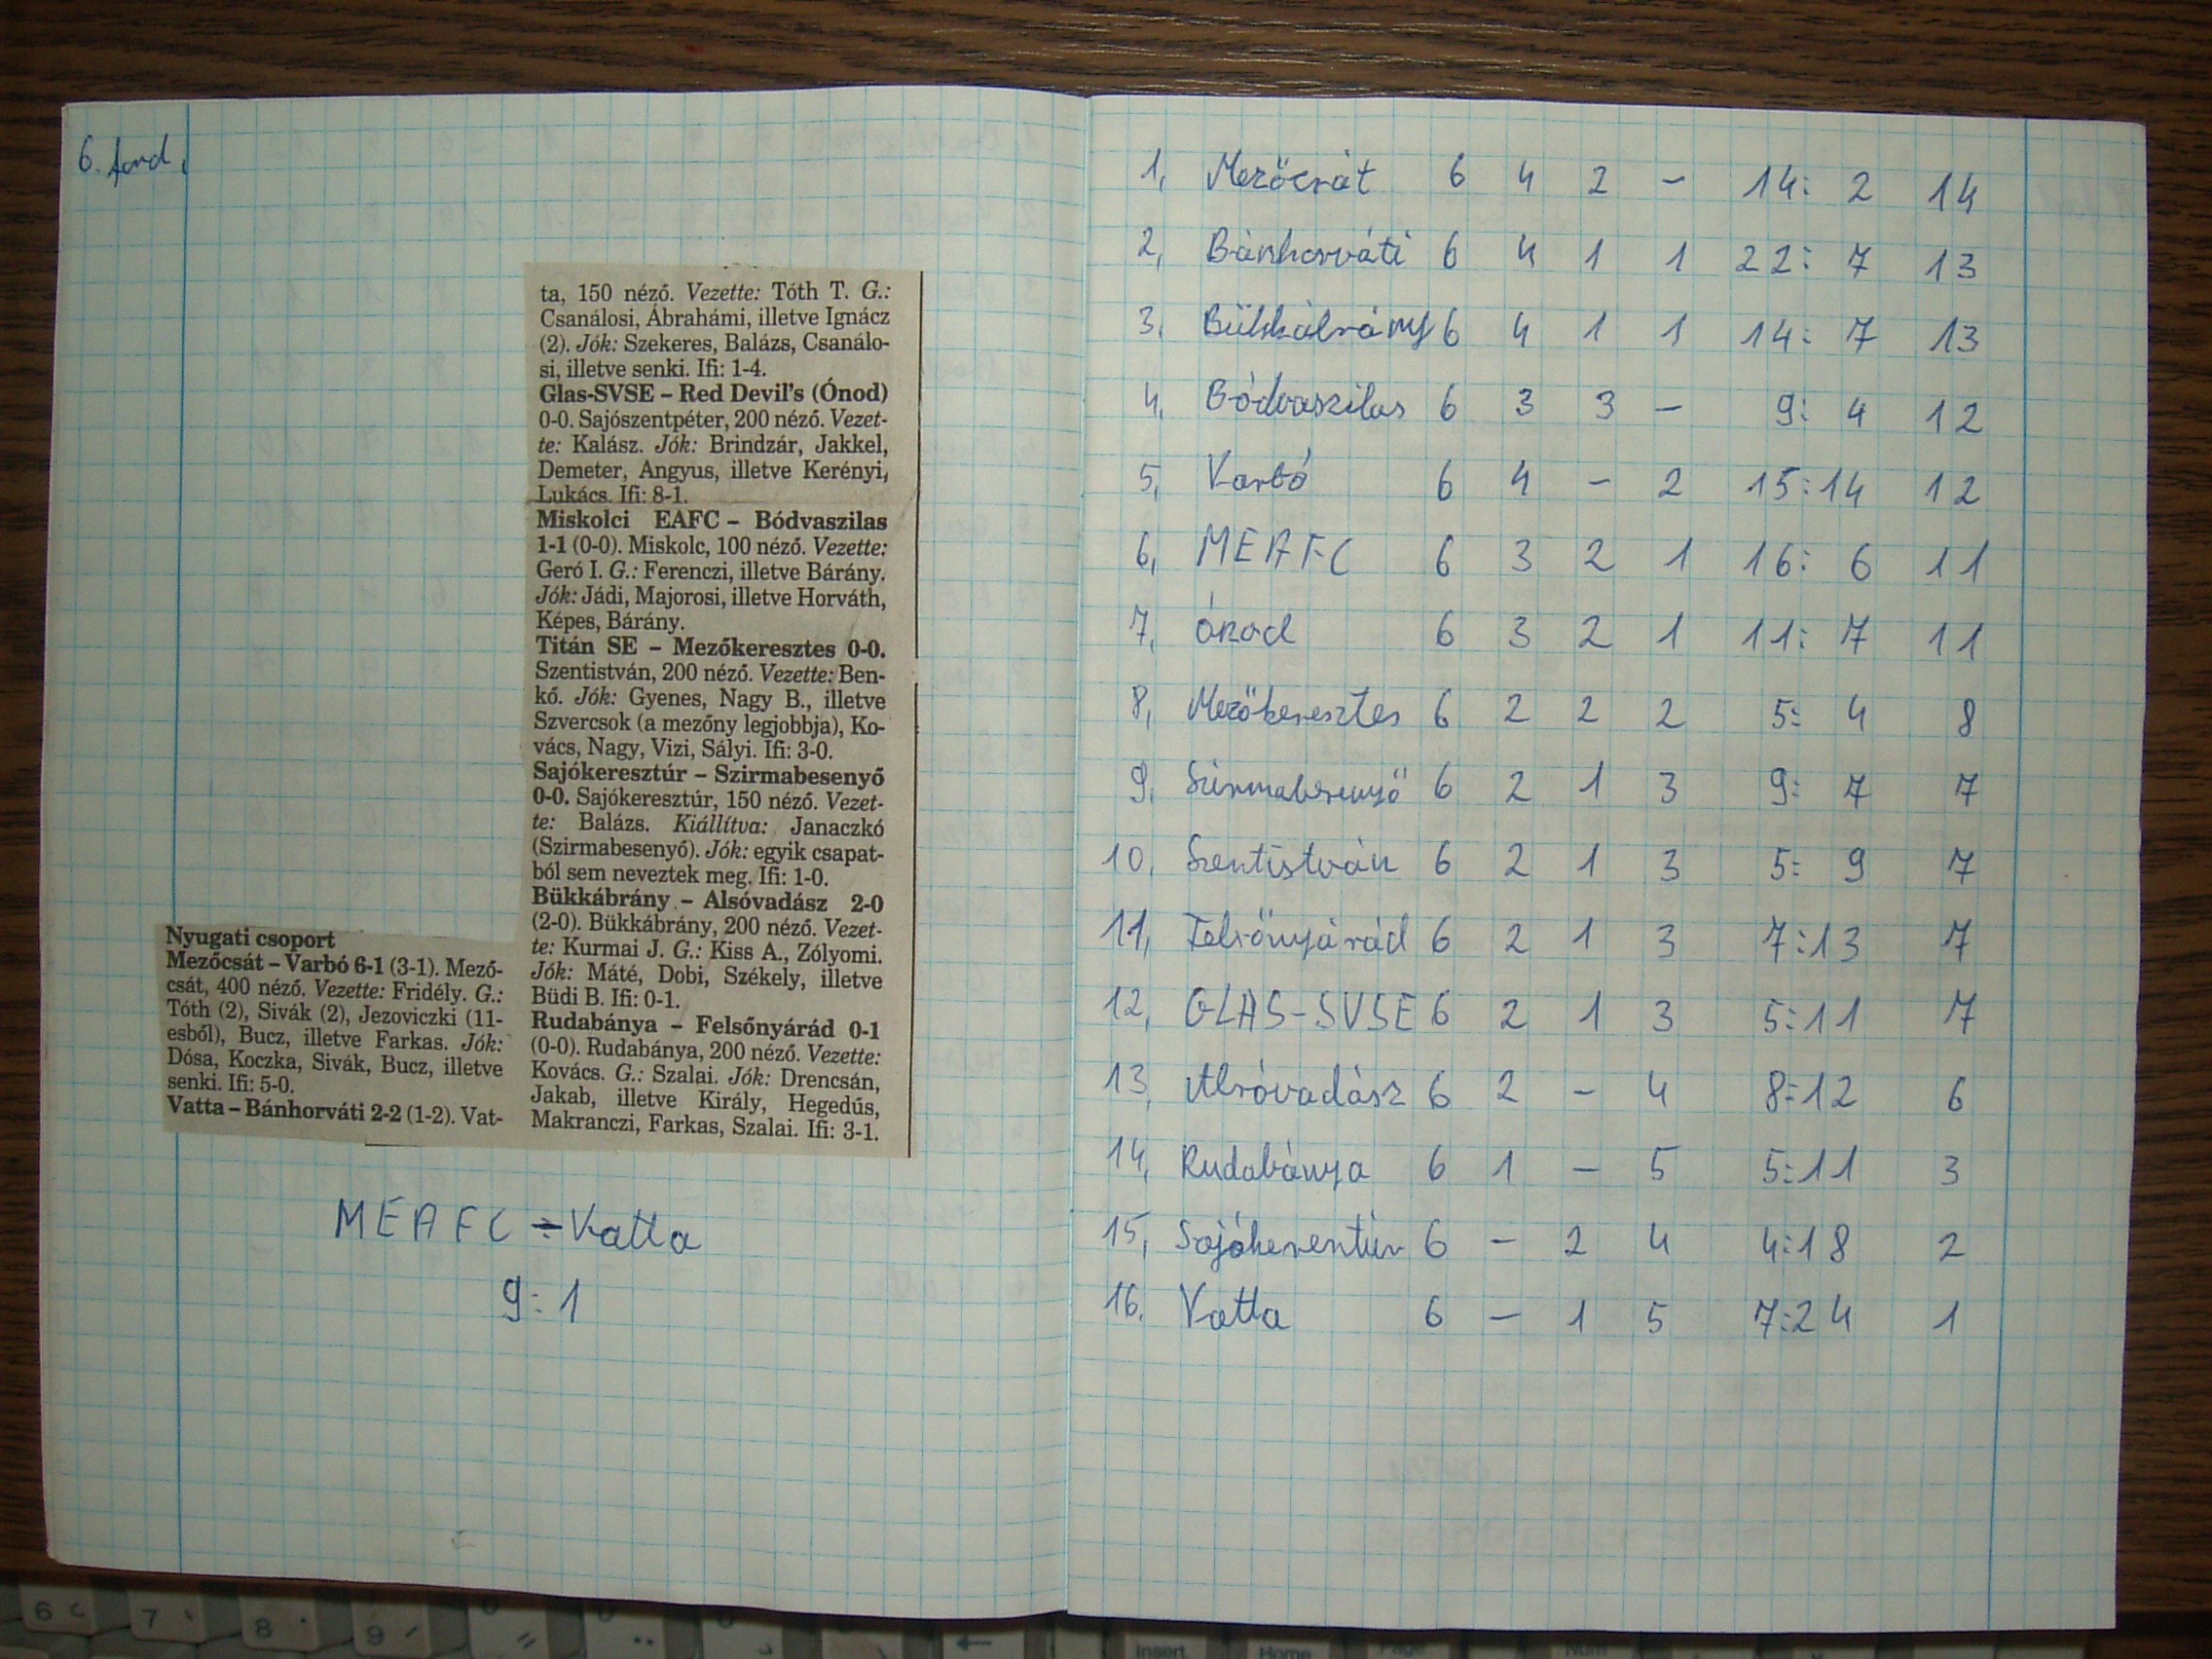 6. ford.
Nyugati csoport
Mezőcsát – Varbó 6-1 (3-1). Mező-
csát, 400 néző. Vezette: Fridély. G.:
Tóth (2), Sivák (2), Jezoviczki (11-
esből), Bucz, illetve Farkas. Jók:
Dósa, Koczka, Sivák, Bucz, illetve
senki. Ifi: 5-0.
Vatta – Bánhorváti 2-2 (1-2). Vat-
ta, 150 néző. Vezette: Tóth T. G.:
Csanálosi, Ábrahámi, illetve Ignácz
(2). Jók: Szekeres, Balázs, Csanálo-
si, illetve senki. Ifi: 1-4.
Glas-SVSE – Red Devil's (Ónod)
0-0. Sajószentpéter, 200 néző. Vezet-
te: Kalász. Jók: Brindzár, Jakkel,
Demeter, Angyus, illetve Kerényi,
Lukács. Ifi: 8-1.
Miskolci EAFC – Bódvaszilas
1-1 (0-0). Miskolc, 100 néző. Vezette:
Geró I. G.: Ferenczi, illetve Bárány.
Jók: Jádi, Majorosi, illetve Horváth,
Képes, Bárány.
Titán SE – Mezőkeresztes 0-0.
Szentistván, 200 néző. Vezette: Ben-
kő. Jók: Gyenes, Nagy B., illetve
Szvercsok (a mezőny legjobbja), Ko-
vács, Nagy, Vizi, Sályi. Ifi: 3-0.
Sajókeresztúr – Szirmabesenyő
0-0. Sajókeresztúr, 150 néző. Vezet-
te: Balázs. Kiállítva: Janaczkó
(Szirmabesenyő). Jók: egyik csapat-
ból sem neveztek meg. Ifi: 1-0.
Bükkábrány – Alsóvadász 2-0
(2-0). Bükkábrány, 200 néző. Vezet-
te: Kurmai J. G.: Kiss A., Zólyomi.
Jók: Máté, Dobi, Székely, illetve
Büdi B. Ifi: 0-1.
Rudabánya – Felsőnyárád 0-1
(0-0). Rudabánya, 200 néző. Vezette:
Kovács. G.: Szalai. Jók: Drencsán,
Jakab, illetve Király, Hegedűs,
Makranczi, Farkas, Szalai. Ifi: 3-1.
MEAFC - Vatta
9:1
1, Mezőcsát 6 4 2 – 14: 2 14
2, Bánhorváti 6 4 1 1 22: 7 13
3, Bükkábrány 6 4 1 1 14: 7 13
4, Bódvaszilas 6 3 3 – 9: 4 12
5, Varbó 6 4 – 2 15:14 12
6, MEAFC 6 3 2 1 16: 6 11
7, Ónod 6 3 2 1 11: 7 11
8, Mezőkeresztes 6 2 2 2 5: 4 8
9, Szirmabesenyő 6 2 1 3 9: 7 7
10, Szentistván 6 2 1 3 5: 9 7
11, Felsőnyárád 6 2 1 3 7:13 7
12, GLAS-SVSE 6 2 1 3 5:11 7
13, Alsóvadász 6 2 – 4 8:12 6
14, Rudabánya 6 1 – 5 5:11 3
15, Sajókeresztúr 6 – 2 4 4:18 2
16. Vatta 6 – 1 5 7:24 1
6
7
8
9
Insert
Home
Page
Num